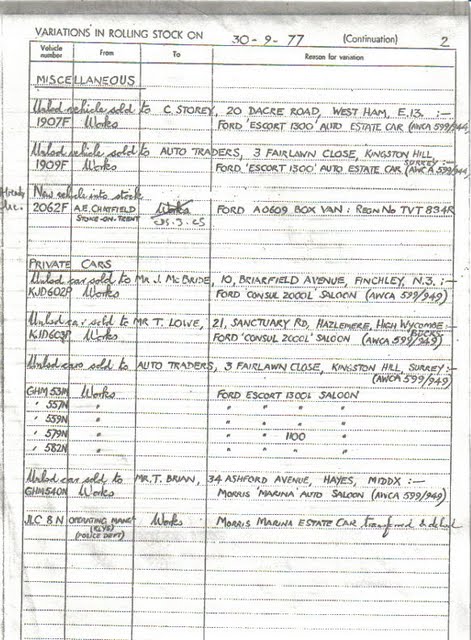 VARIATIONS IN ROLLING STOCK ON 30-9-77 (Continuation) 2
Vehicle number From To Reason for variation
MISCELLANEOUS
Unlsd vehicle sold to C. STOREY, 20 DACRE ROAD, WEST HAM, E.13. :—
1907F Works FORD 'ESCORT 1300' AUTO ESTATE CAR (AWCA 599/949)
Unlsd vehicle sold to AUTO TRADERS, 3 FAIRLAWN CLOSE, KINGSTON HILL, SURREY :—
1909F Works FORD 'ESCORT 1300' AUTO ESTATE CAR (AWCA 599/949)
New vehicle into stock
Already inc. 2062F A.E. CHATFIELD Works FORD A0609 BOX VAN : REGN NO TVT 834R
STOKE-ON-TRENT
PRIVATE CARS
Unlsd car sold to MR J. MCBRIDE, 10, BRIARFIELD AVENUE, FINCHLEY, N.3. :—
KJD602P Works FORD CONSUL 2000L SALOON (AWCA 599/949)
Unlsd car sold to MR T. LOWE, 21, SANCTUARY RD, HAZLEMERE, HIGH WYCOMBE :— BUCKS
KJD603P Works FORD 'CONSUL 2000L' SALOON (AWCA 599/949)
Unlsd cars sold to AUTO TRADERS, 3 FAIRLAWN CLOSE, KINGSTON HILL, SURREY :—
(AWCA 599/949)
GHM 53M Works FORD ESCORT 1300L SALOON
" 557N " " " " "
" 559N " " " " "
" 579N " " " 1100 "
" 582N " " " " "
Unlsd car sold to MR. T. BRIAN, 34 ASHFORD AVENUE, HAYES, MIDDX :—
GHM540N Works MORRIS 'MARINA' AUTO SALOON (AWCA 599/949)
JLC 8 N OPERATING MANGR Works MORRIS MARINA ESTATE CAR transferred &
(RLYS)
(POLICE DEPT)